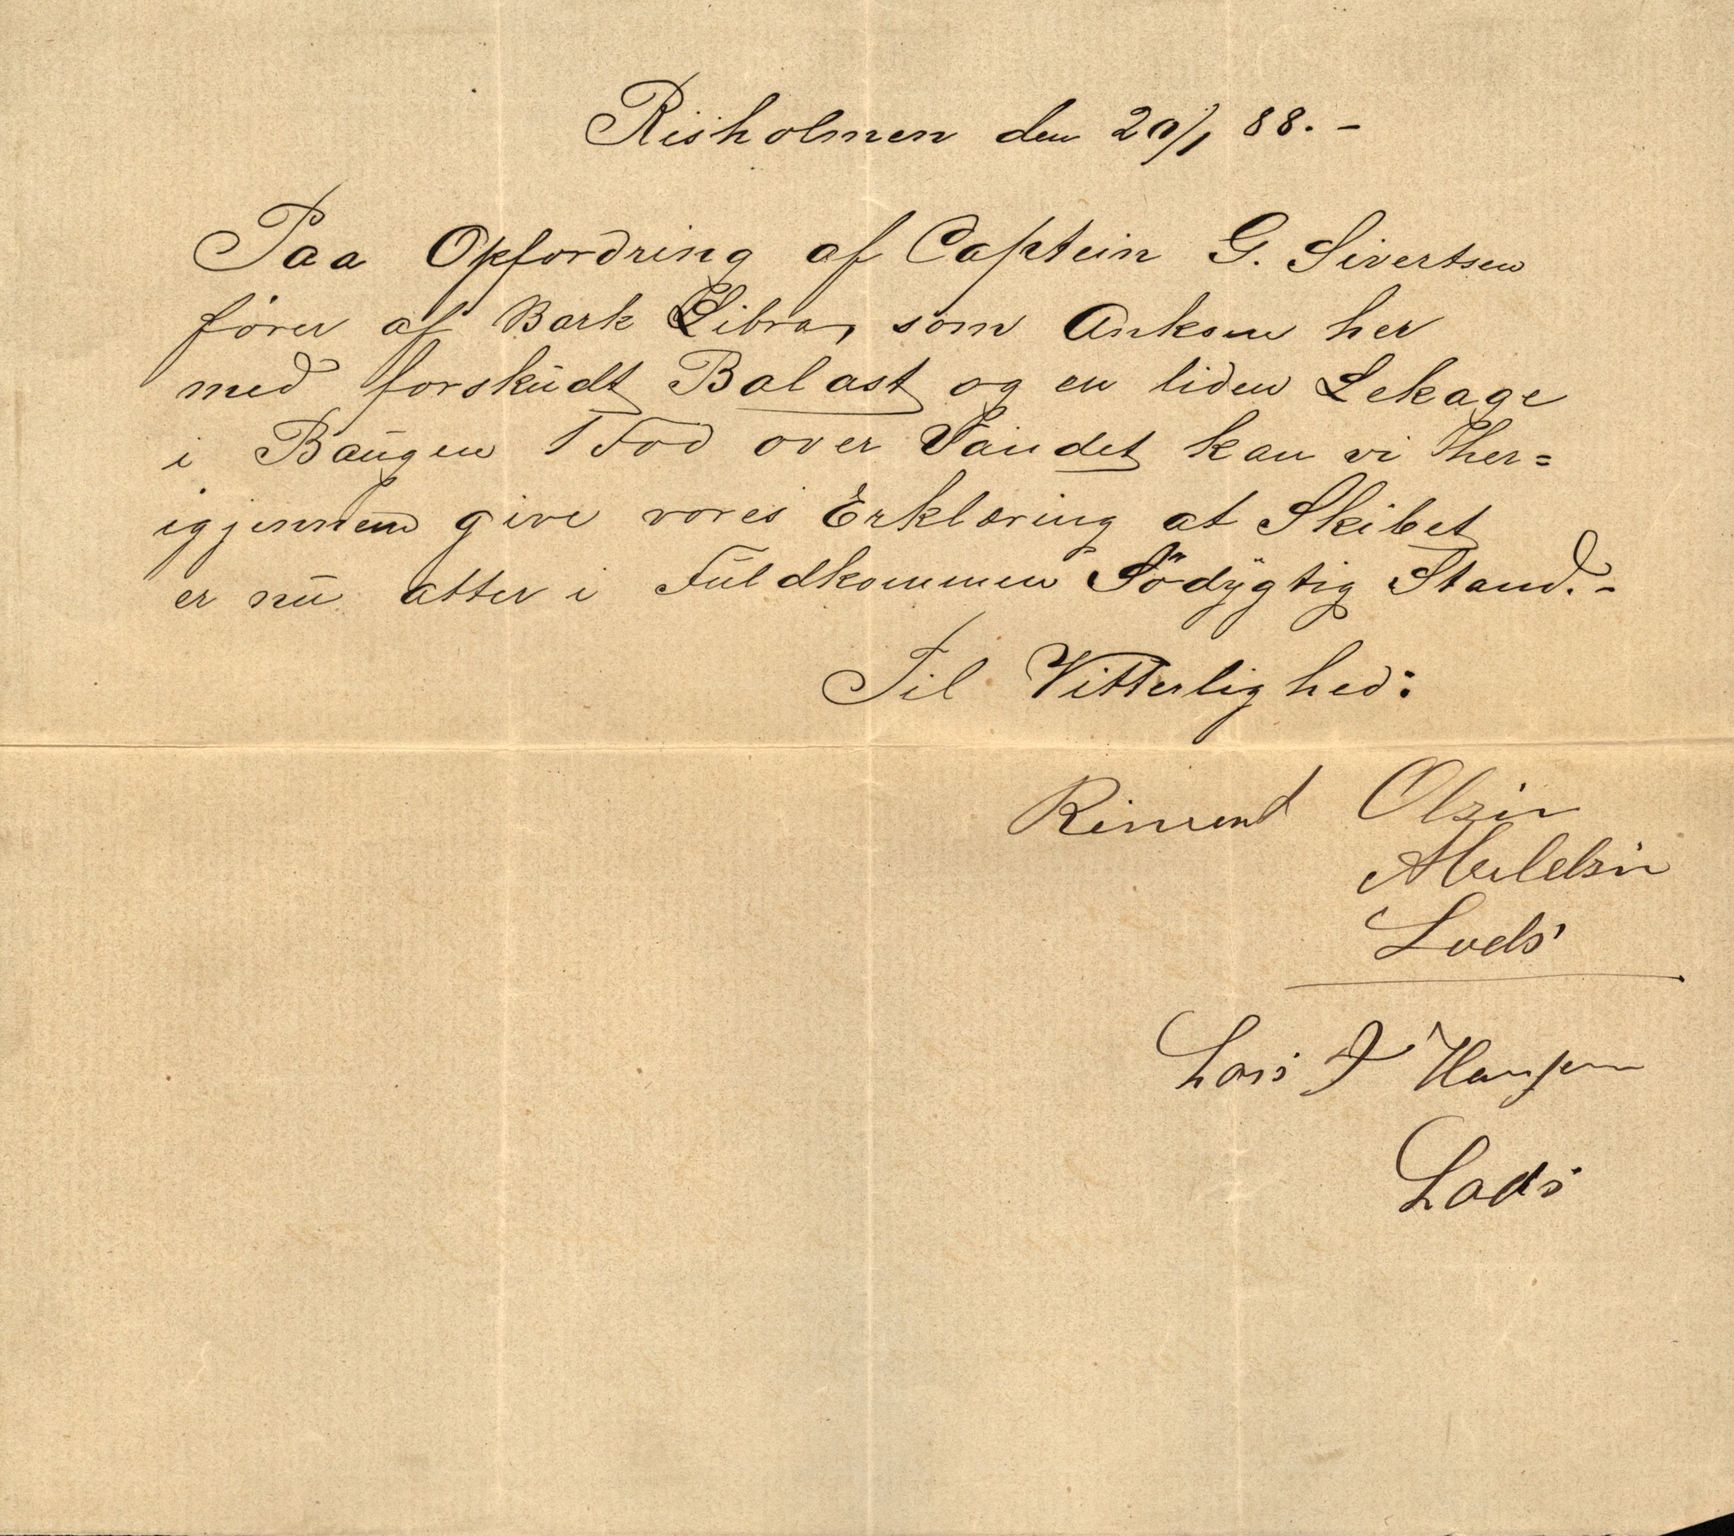 Risholmen den 20/1 88. -
Paa Opfordring af Captein G. Sivertsen
fører af Bark Libra, som Ankom her
med forskudt Balast og en liden Lekage
i Baugen 1 Fod over Vandet kan vi her=
igjennem give vores Erklæring at Skibet
er nu atter i Fuldkommen Södygtig Stand. -
Til Vitterlighed:
Olsen
Lods
Lars J Hansen
Lods